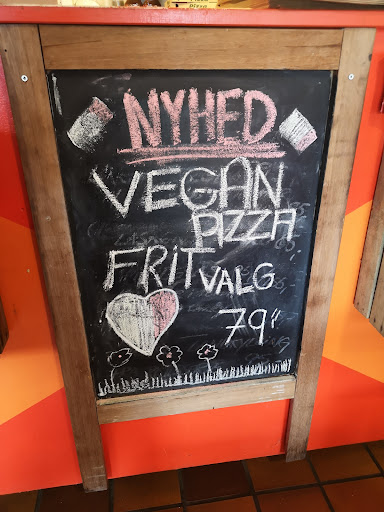 NYHED
VEGAN
PIZZA
FRIT VALG
79"